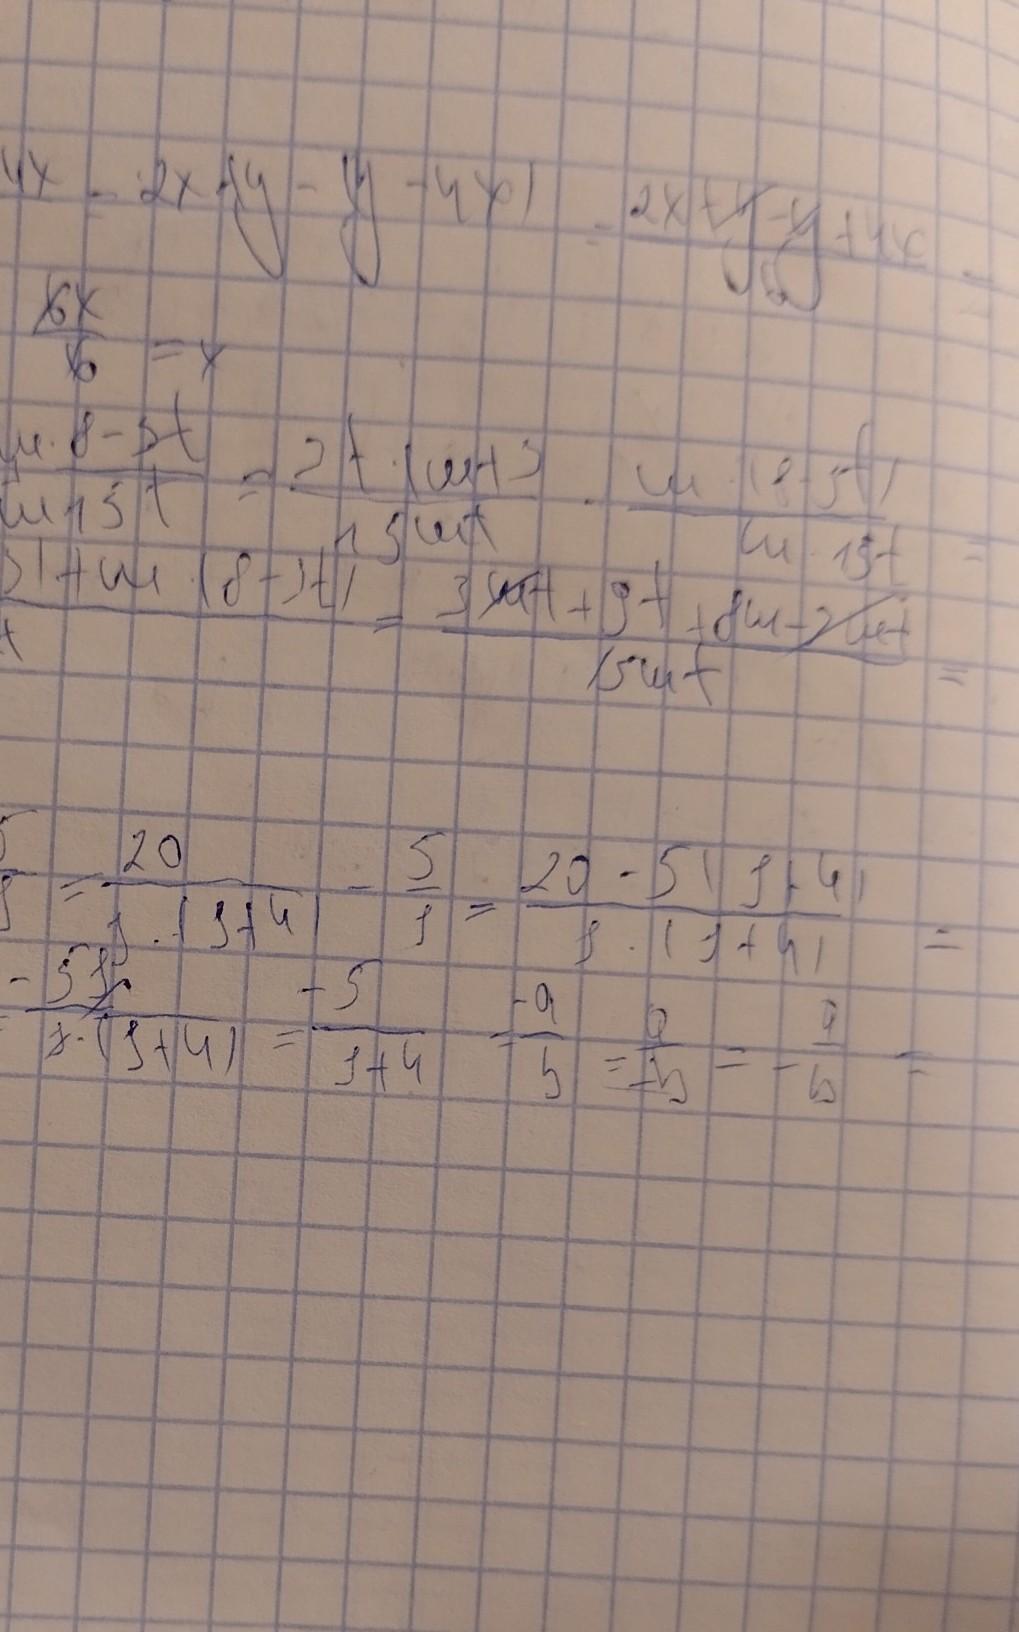 4x - 2x+y - (y-4x) = 2x+y-y+4x =
6x/6 = x
m·8-3t/m15t = 3t·(m+3/15mt - m·(8-3t)/m·15t =
3)+m·(8-3t)/t = 3mt+9t+8m-3mt/15mt =
5/y = 20/y·(y+4) - 5/y = 20-5(y+4)/y·(y+4) =
= -5y/y·(y+4) = -5/y+4 = -a/b = a/-b = -a/b =